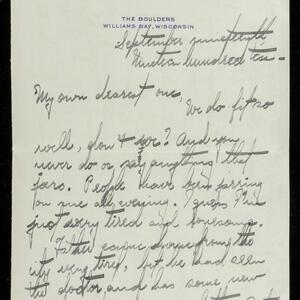 THE BOULDERS
WILLIAMS BAY, WISCONSIN
September nineteenth
Nineteen hundred ten -
My own dearest one,
We do fit so
well, don't we? And you
never do or say anything that
jars. People have been jarring
on me all evening. I guess I'm
just very tired and
Father came from the
city very tired, but he had seen
the doctor and has some new